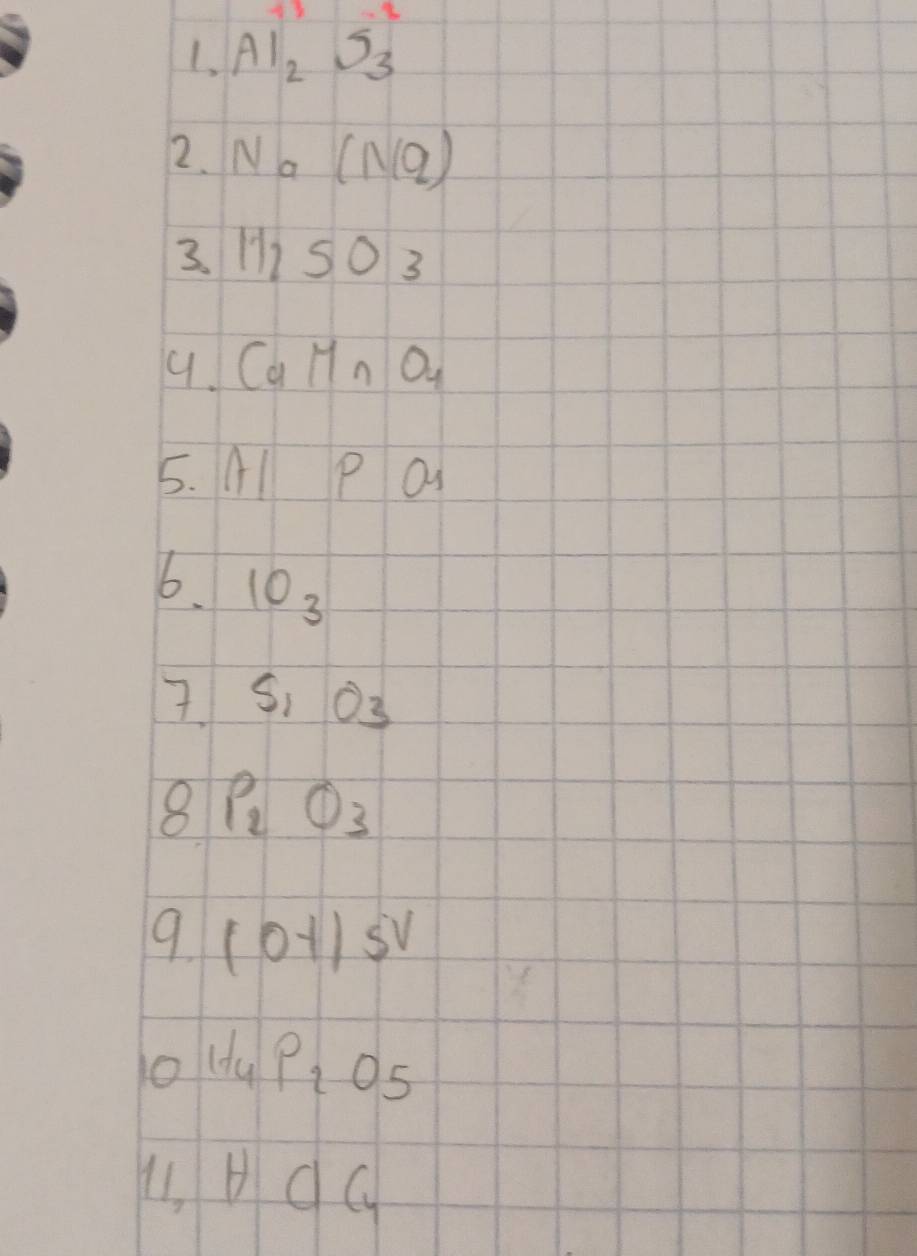 +3 -2
1. Al₂ S₃
2. Na (NO₂)
3. H₂ SO₃
4. Ca Mn O₄
5. Al P O₄
6. IO₃
7. Si O₃
8 P₂ O₃
9. (OH)5V
10 H₄ P₂ O5
11.